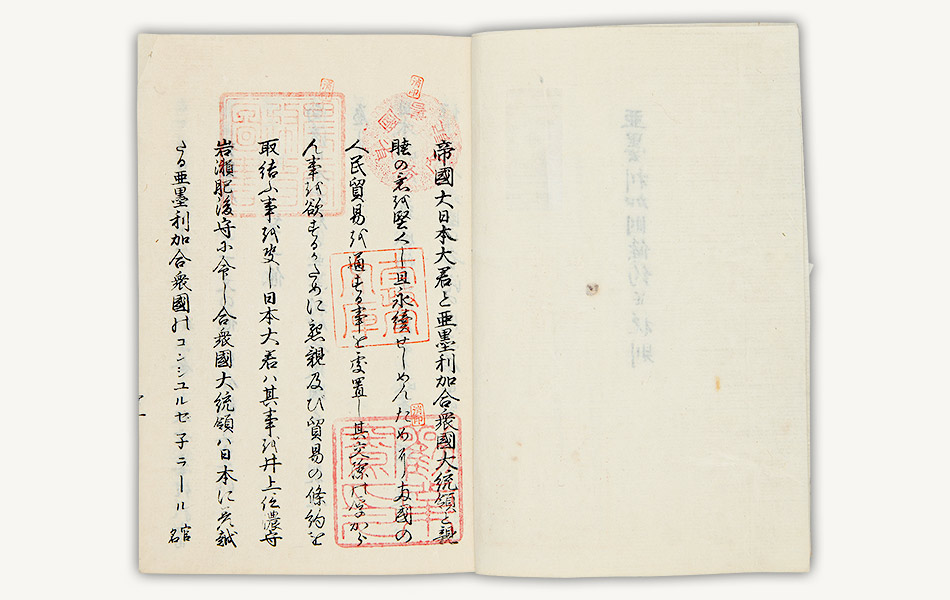 帝國大日本大君と亜墨利加合衆國大統領と親
睦の意を堅くし且永續せしめんために両國の
人民貿易を通する事を處置し其交際の厚から
ん事を欲するかために懇親及び貿易の條約を
取結ふ事を決し日本大君ハ其事を井上信濃守
岩瀬肥後守に命し合衆國大統領ハ日本に差越
たる亜墨利加合衆國のコンシユルセ子ラール官名